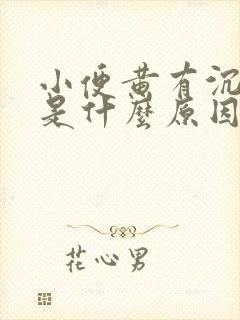 小便黄有沉
是什麼原因
花心男